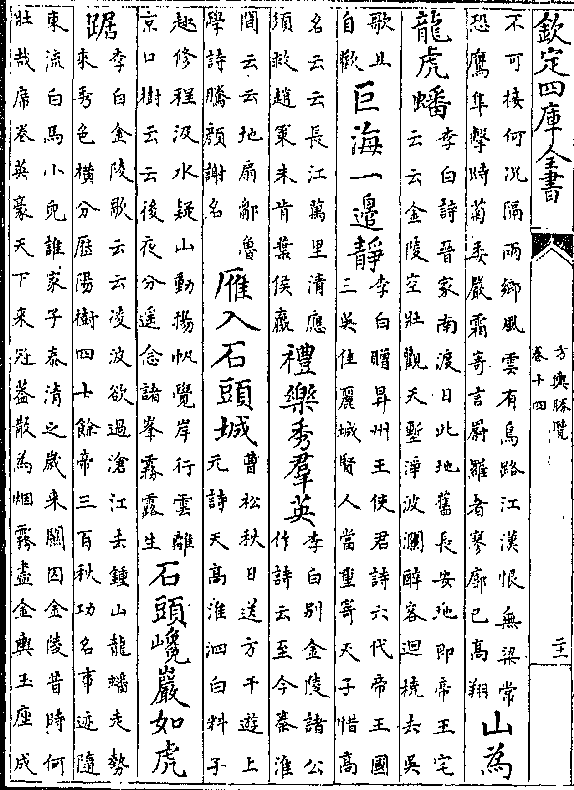 欽定四庫全書
方輿勝覽
卷十四
二十一
不可接何况隔兩鄉風雲有鳥路江漢恨無梁常
恐鷹隼擊時菊委嚴霜寄言罻羅者寥廓已高翔
山為
龍虎蟠
李白詩晉家南渡日此地舊長安地即帝王宅
云云金陵空壯觀天塹淨波瀾醉客迴橈去吳
歌且
自歡
巨海一邊靜
李白贈昇州王使君詩六代帝王國
三吳佳麗城賢人當重寄天子惜高
名云云長江萬里清應
須救趙策未肯棄侯嬴
禮樂秀羣英
李白別金陵諸公
作詩云至今秦淮
間云云地扇鄒魯
學詩騰顔謝名
雁入石頭城
曹松秋日送方干遊上
元詩天高淮泗白料子
趨修程汲水疑山動揚帆覺岸行雲離
京口樹云云後夜分遥念諸峯霧露生
石頭巉巖如虎
踞
李白金陵歌云云凌波欲過滄江去鍾山龍蟠走勢
來秀色横分歷陽樹四十餘帝三百秋功名事迹隨
東流白馬小兒誰家子泰清之歲來關囚金陵昔時何
壯哉席卷英豪天下來冠葢散為烟霧盡金輿玉座成